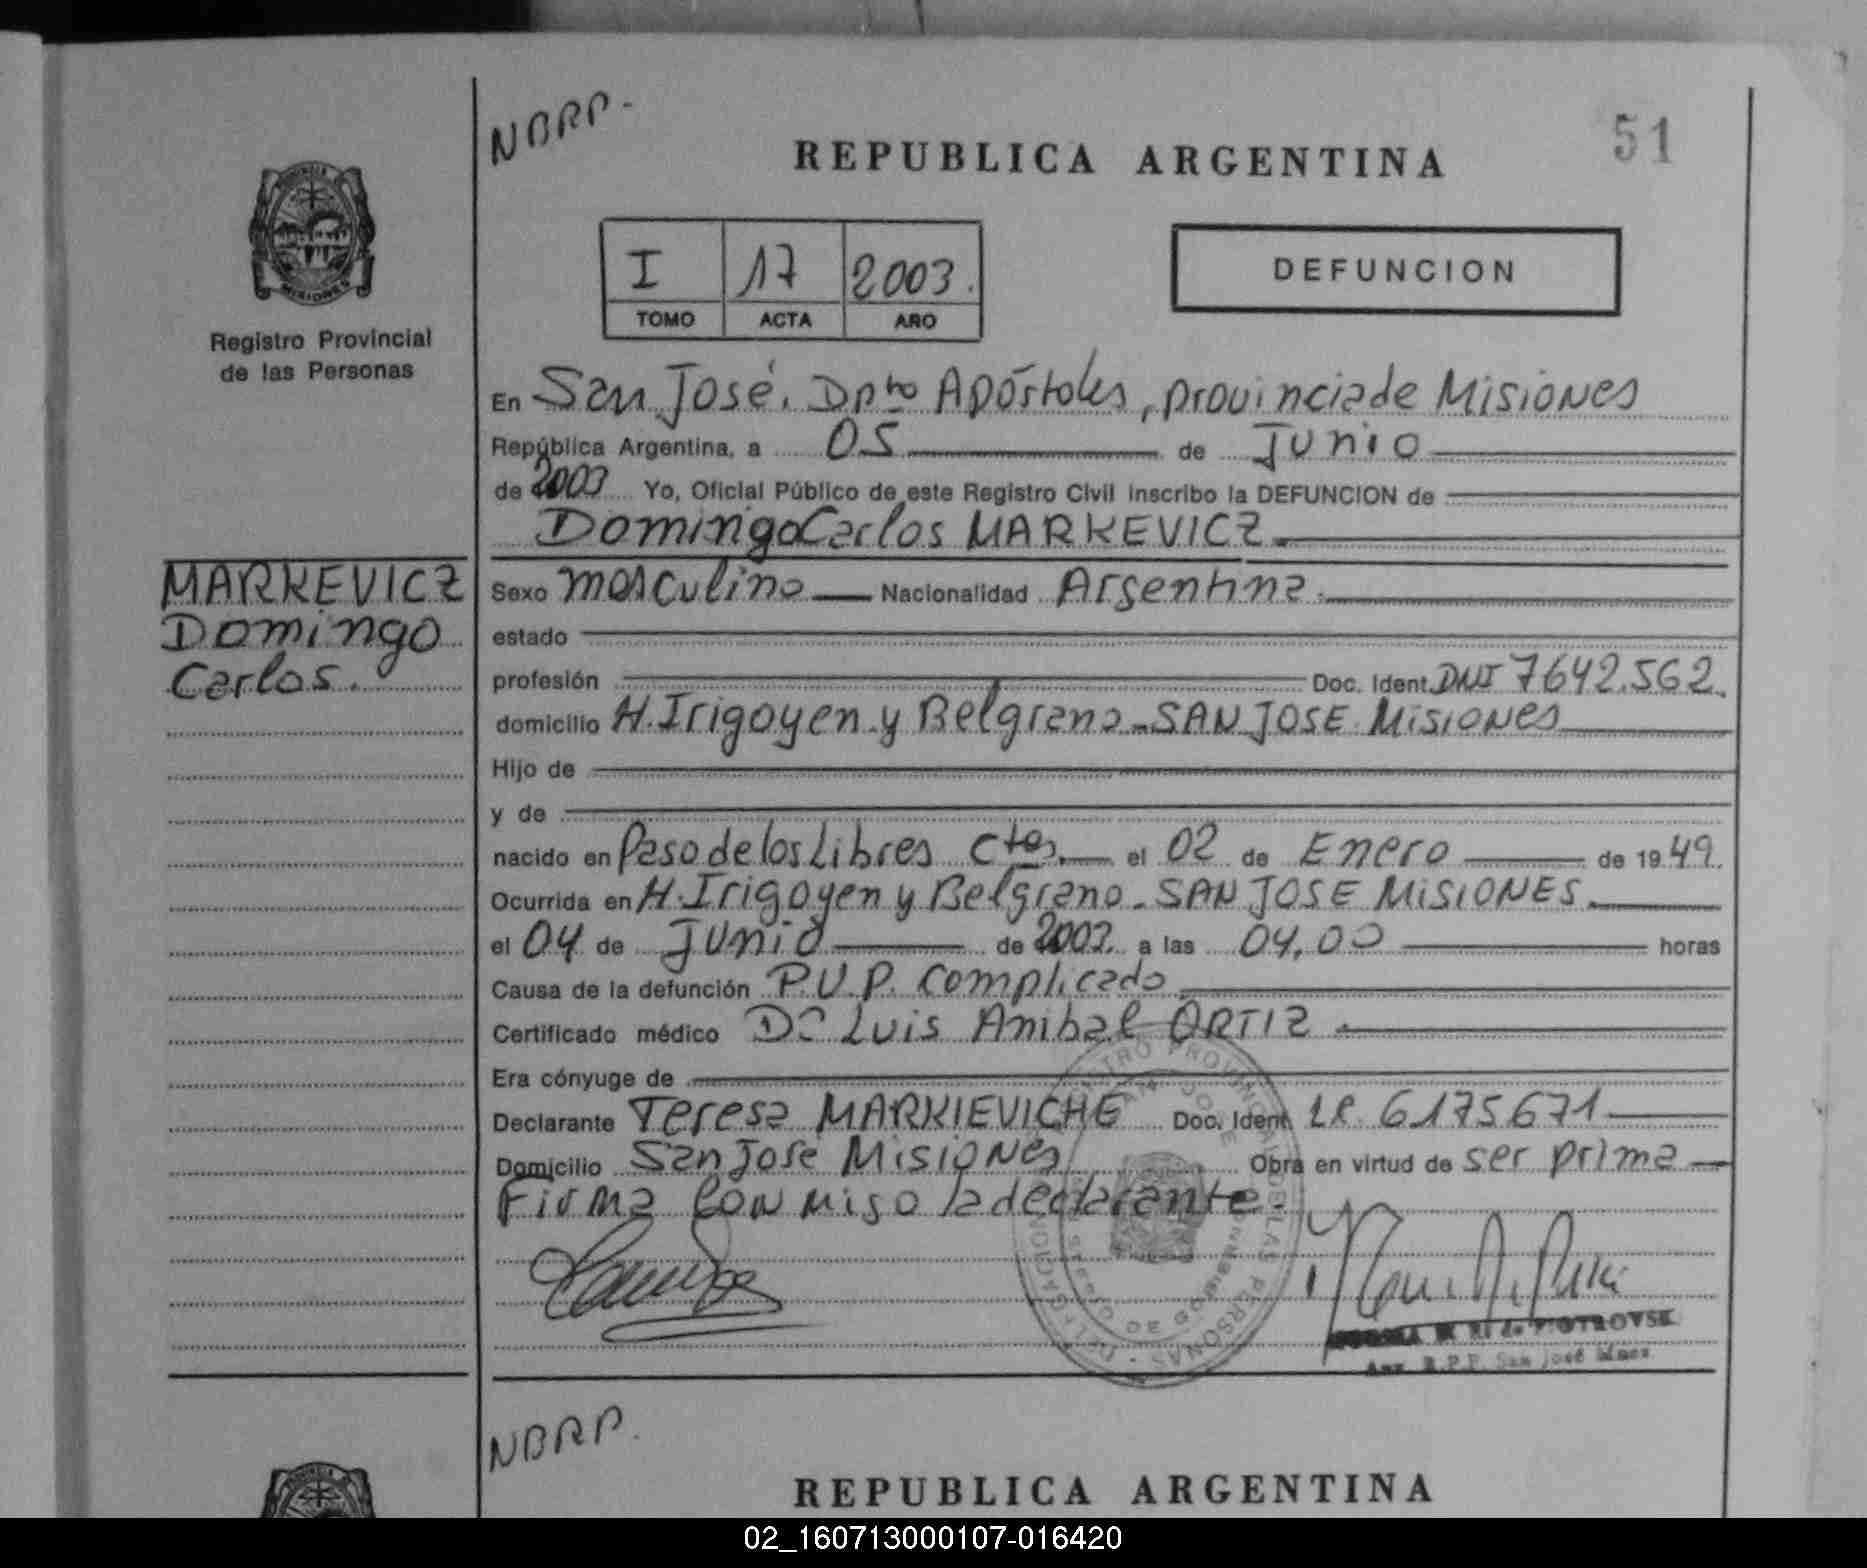 NBRP.
REPUBLICA ARGENTINA
51
I 17 2003.
TOMO ACTA AÑO
DEFUNCION
MISIONES
Registro Provincial
de las Personas
En San José, Dpto Apóstoles, provincia de Misiones
República Argentina, a 05 de Junio
de 2003 Yo, Oficial Público de este Registro Civil inscribo la DEFUNCION de
Domingo Carlos MARKEVICZ.
MARKEVICZ
Domingo
Carlos.
Sexo masculino Nacionalidad Argentina.
estado
profesión Doc. Ident. DNI 7642.562.
domicilio H. Irigoyen y Belgrano - SAN JOSE Misiones
Hijo de
y de
nacido en Paso de los Libres Ctes. el 02 de Enero de 1949.
Ocurrida en H. Irigoyen y Belgrano - SAN JOSE MISIONES.
el 04 de Junio de a las 04,00 horas
Causa de la defunción P.U.P. complicado
Certificado médico Dr Luis Anibal ORTIZ
Era cónyuge de
Declarante Teresa MARKIEVICHE Doc. Ident. L.C. 6175671
Domicilio San José Misiones Obra en virtud de ser prima
Firma conmigo la declarante.
Aux. R.P.P. San José Mnes
NBRP.
REPUBLICA ARGENTINA
02_160713000107-016420